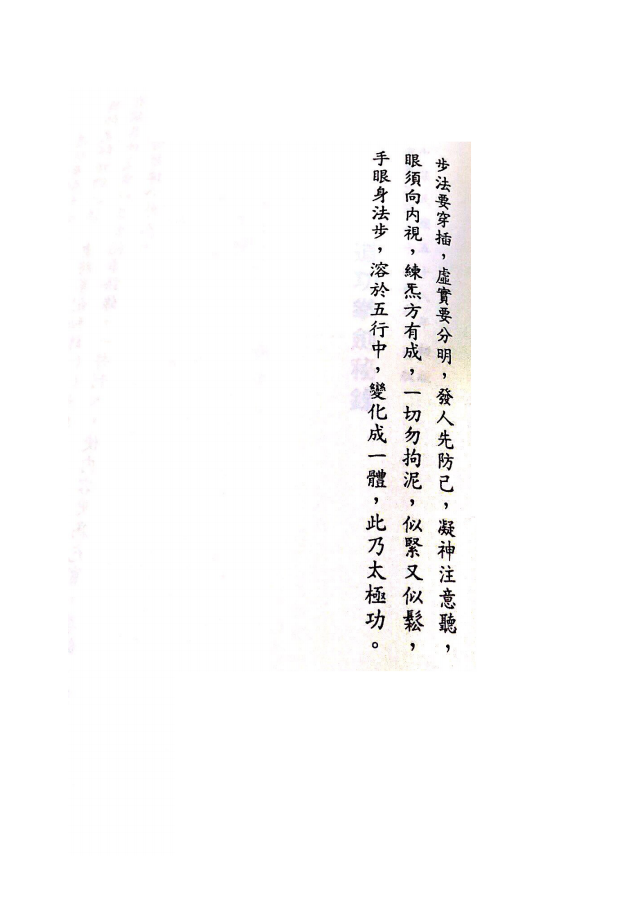 步法要穿插，虛實要分明，發人先防己，凝神注意聽，
眼須向内視，練炁方有成，一切勿拘泥，似緊又似鬆，
手眼身法步，溶於五行中，變化成一體，此乃太極功。